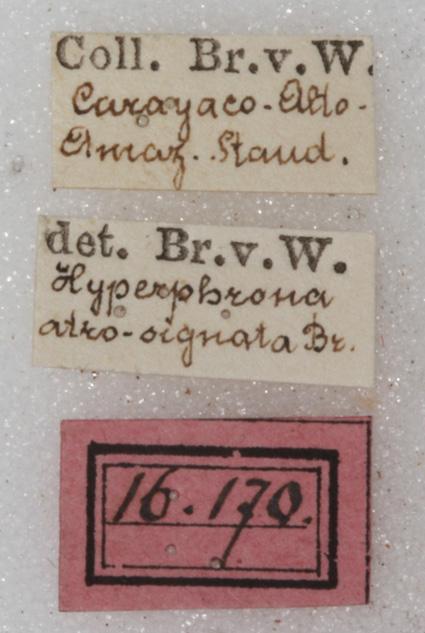 Coll. Br.v.W.
Curayaco-Alto-
Amaz. Staud.
det. Br.v.W.
Hyperphrona
atro-signata Br.
16.170.